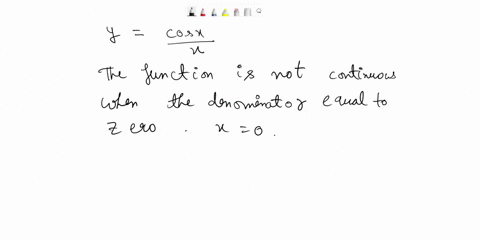 y = cosx/x
The function is not continuous
when the denominator equal to
zero . x = 0 .